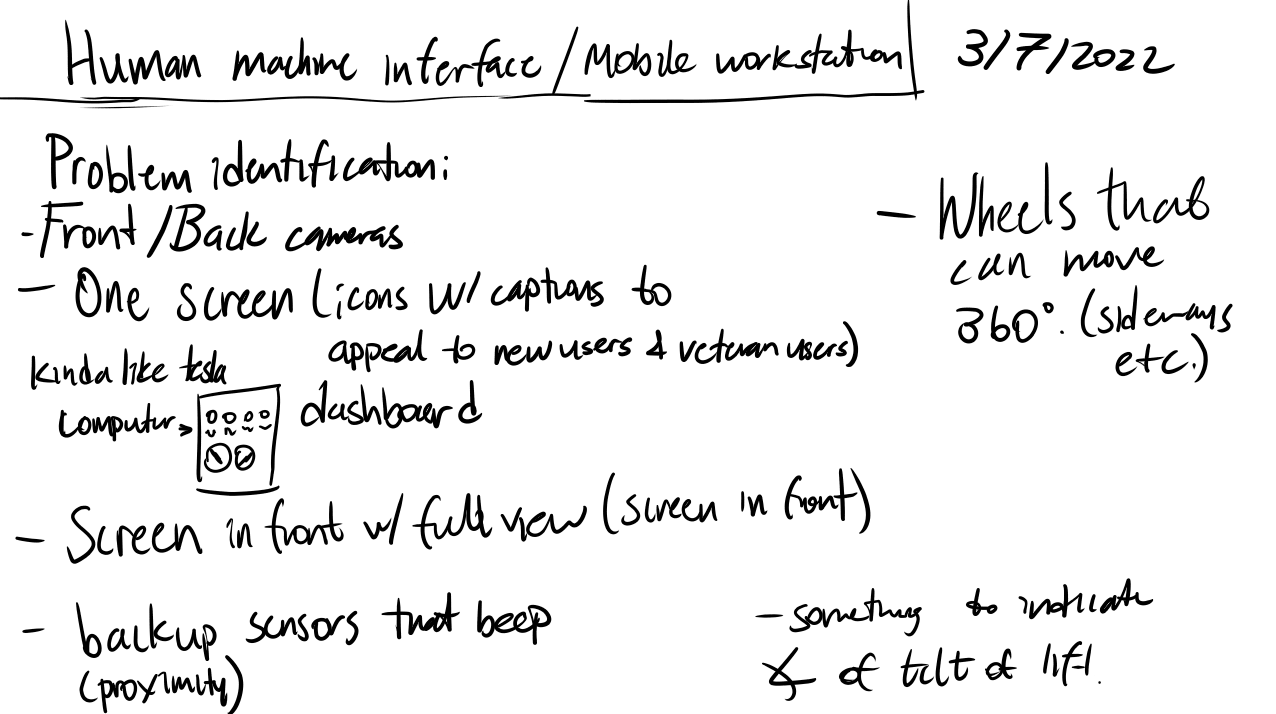 Human machine interface / Mobile workstation 3/7/2022
Problem identification:
- Front / Back cameras
- One screen (icons w/ captions to
appeal to new users & veteran users)
Kinda like tesla
computer → dashboard
- Screen in front w/ full view (screen in front)
- backup sensors that beep
(proximity)
- Wheels that
can move
360°. (sideways
etc.)
- something to indicate
∡ of tilt of lift.